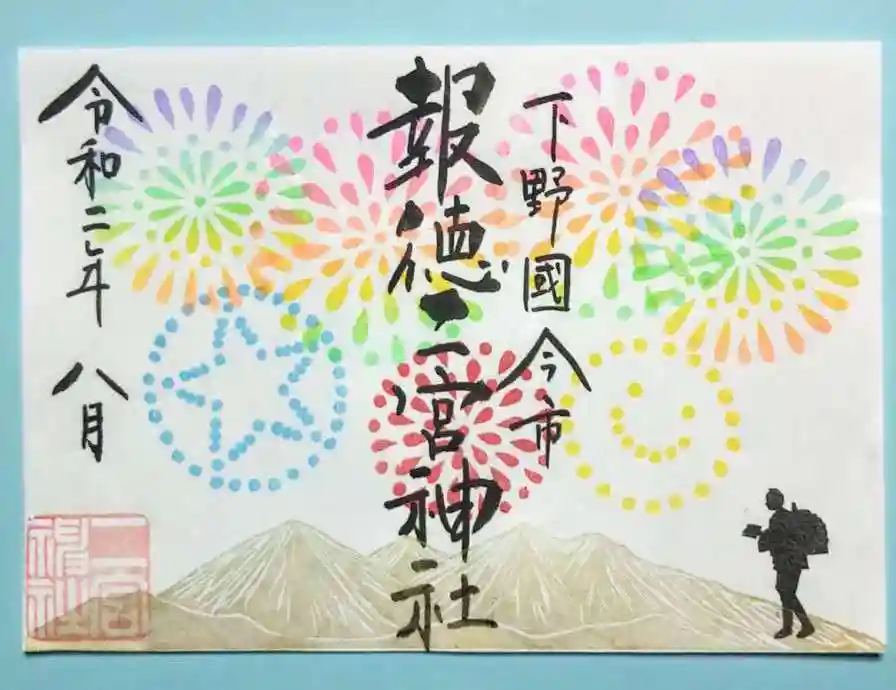 下野國今市
報徳二宮神社
令和二年八月
二宮神社